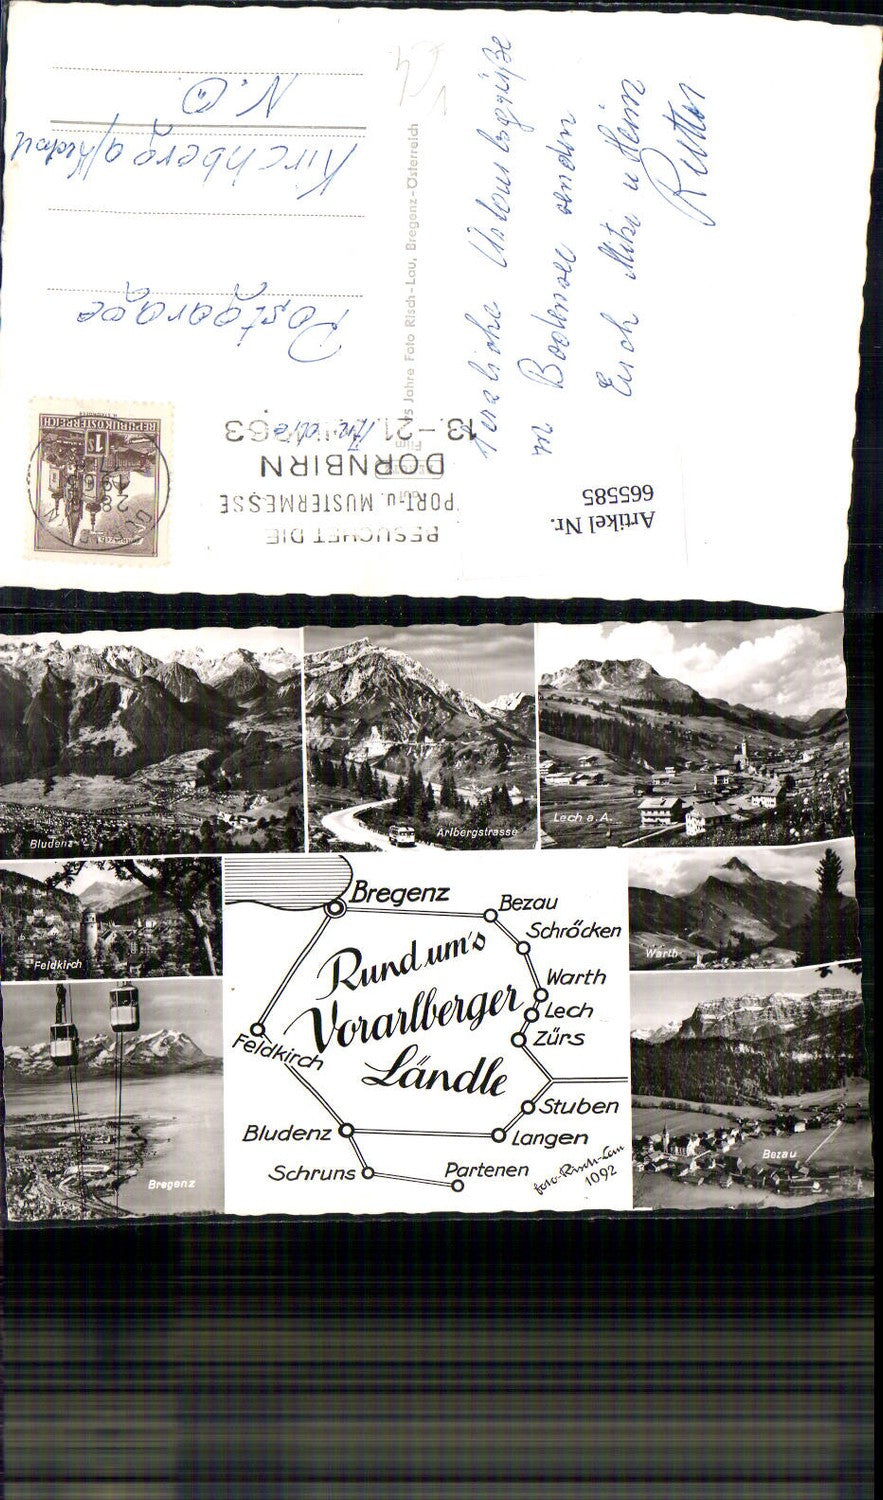 Herzliche Urlaubsgrüße
Bodensee senden
Euch Mike u Heim
Postgarage
Kirchberg a/
N.Ö
Jahre Foto Risch-Lau, Bregenz-Österreich
BESUCHET DIE
PORT-u. MUSTERMESSE
DORNBIRN
REPUBLIK ÖSTERREICH
1 S
Artikel Nr.
665585
Bludenz
Arlbergstrasse
Lech a. A.
Feldkirch
Warth
Bregenz
Bezau
Rund um's
Vorarlberger
Ländle
Bregenz
Bezau
Schröcken
Warth
Lech
Zürs
Stuben
Langen
Partenen
Schruns
Bludenz
Feldkirch
foto-Risch-Lau
1092